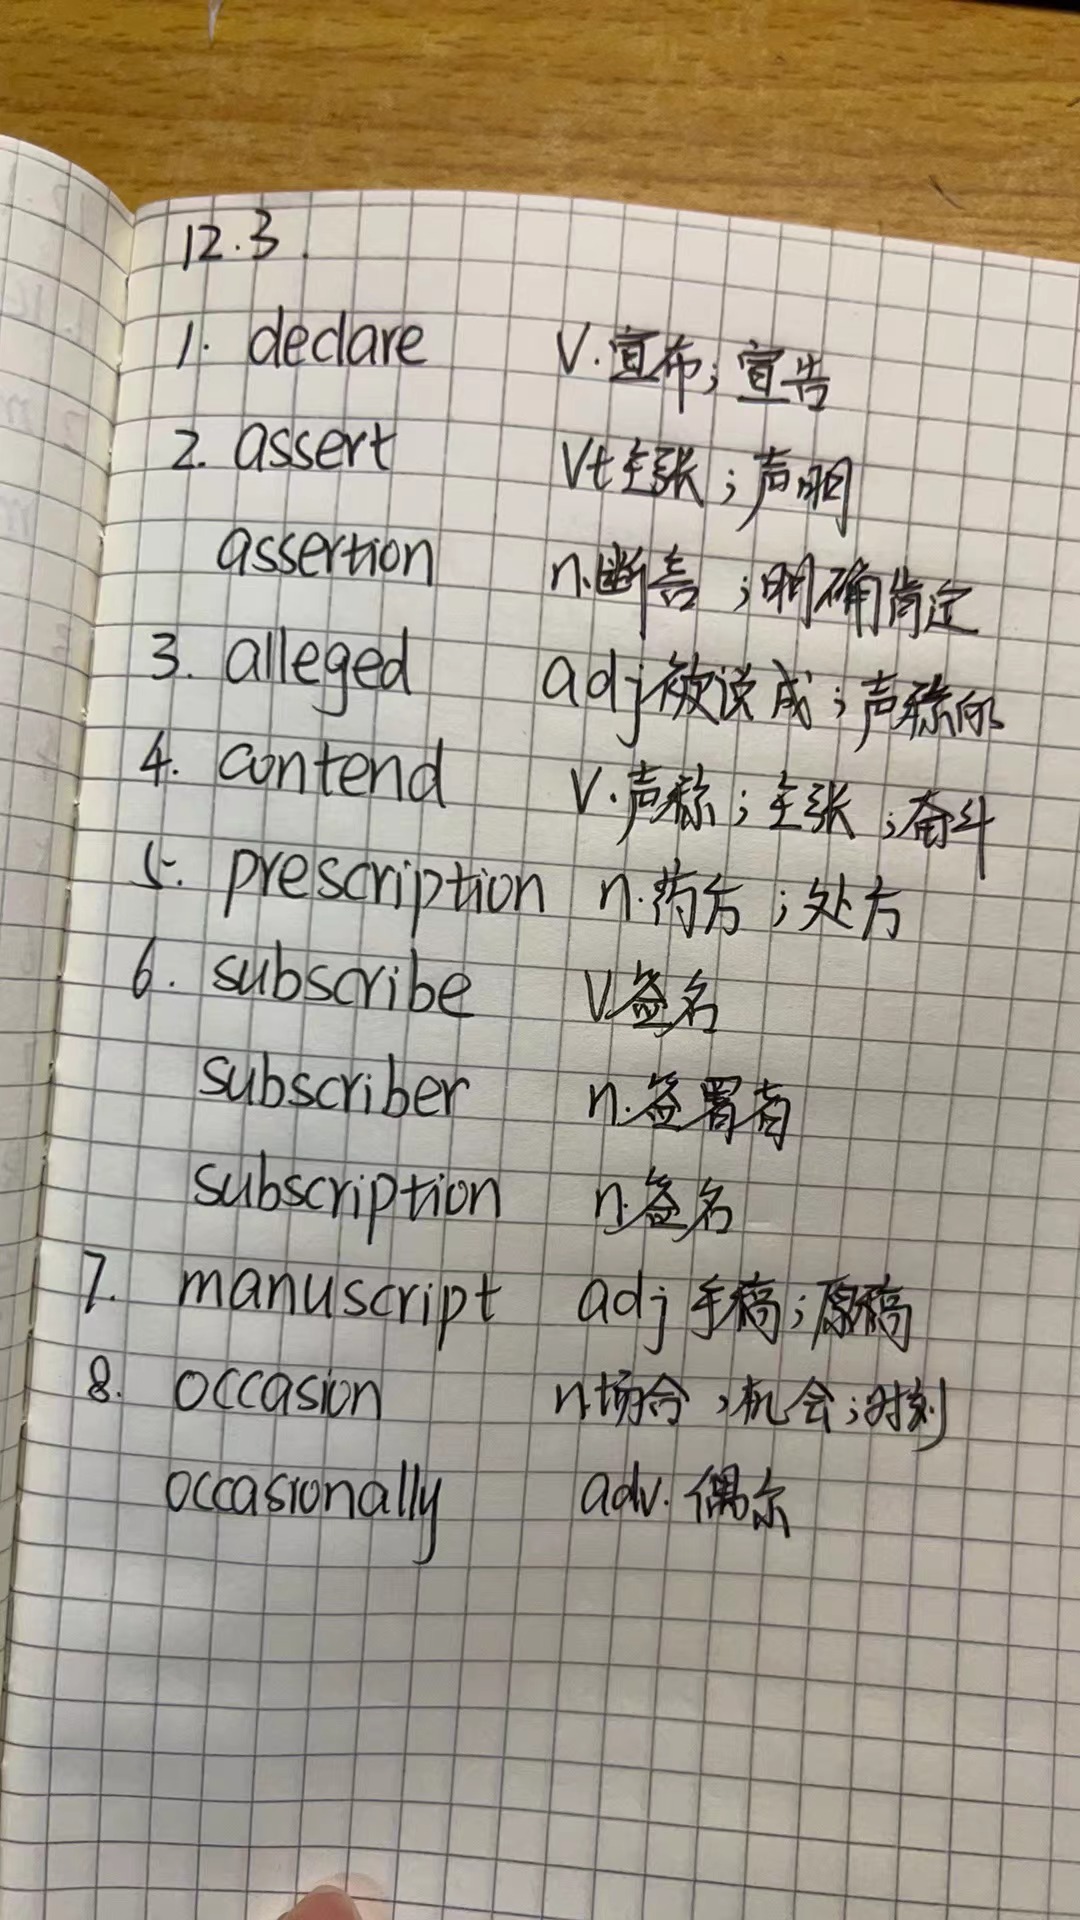 12.3.
1. declare V.宣布；宣告
2. assert Vt主张；声明
assertion n.断言；明确肯定
3. alleged adj被说成；声称的
4. contend V.声称；主张；奋斗
5. prescription n.药方；处方
6. subscribe V.签名
subscriber n.签署者
subscription n.签名
7. manuscript adj手稿；原稿
8. occasion n.场合，机会；时刻
occasionally adv.偶尔